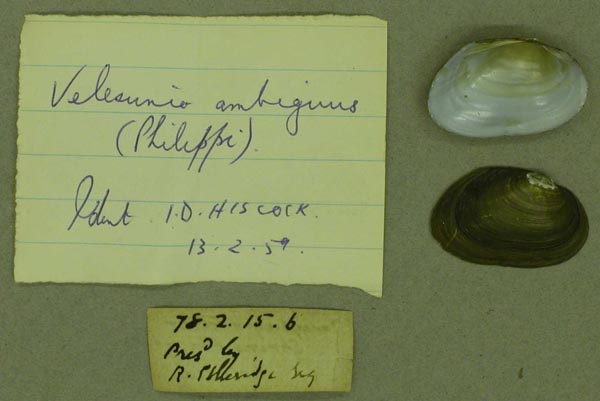 Velesunio ambiguus
(Philippi).
Ident I.D. HISCOCK.
13.2.59.
78.2.15.6
Presd by
R. Etheridge Esq